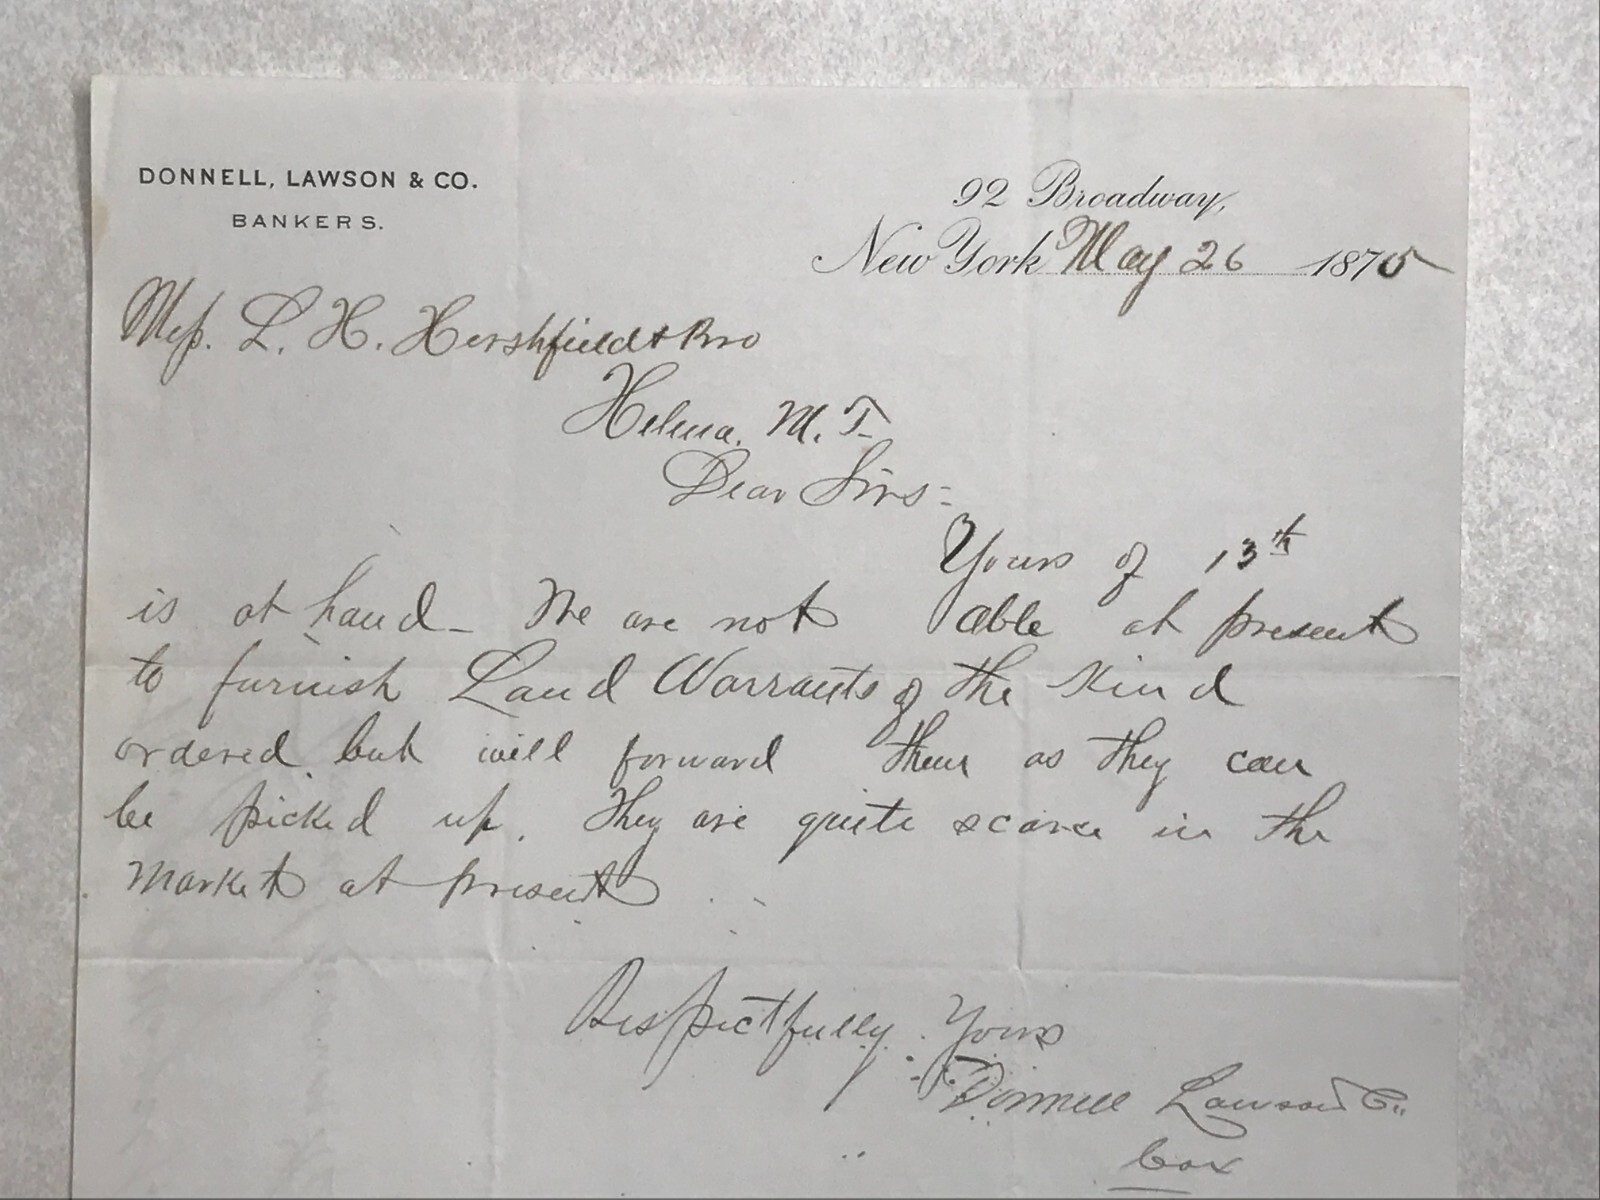 DONNELL, LAWSON & CO.
BANKERS.
92 Broadway,
New York May 26 1875
Mess. L. H. Hershfield & Bro
Helena. M. T.
Dear Sirs-
Yours of 13th
is at hand_ We are not able at present
to furnish Land Warrants of the kind
ordered, but will forward them as they can
be picked up. They are quite scarce in the
market at present
Respectfully Yours
Donnell Lawson & Co.
Cox